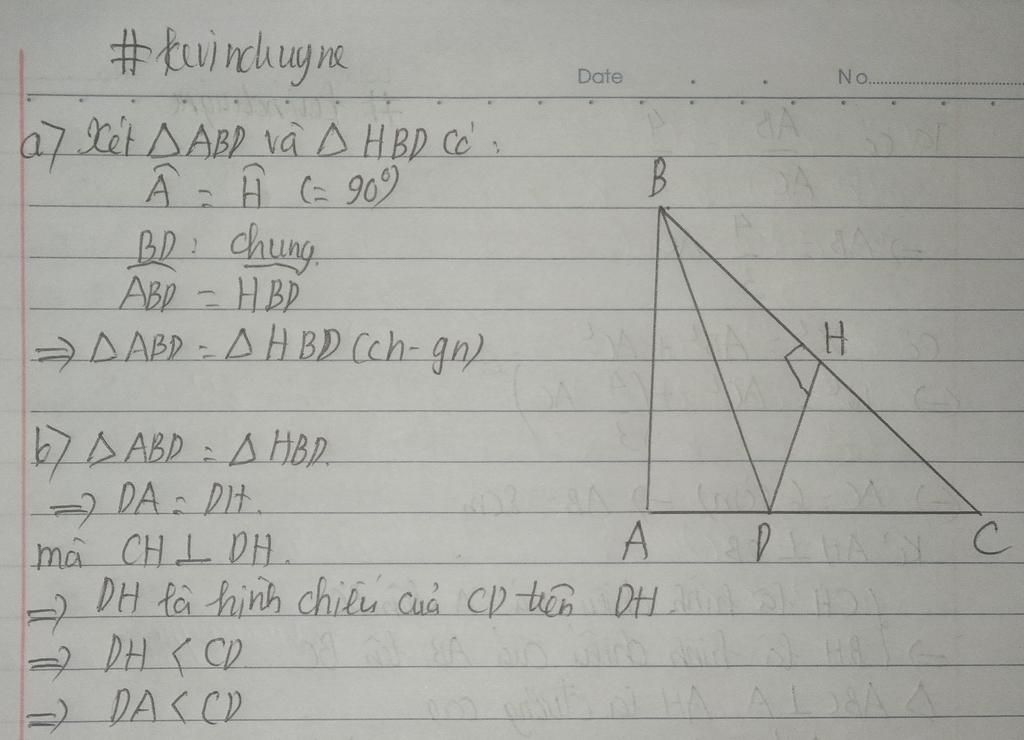 #kevinchuyne
Date . . No...............
a) Xét △ABD và △HBD Có:
Â = Ĥ (= 90°)
BD: chung
ABD = HBD
⇒ △ABD = △HBD (ch-gn)
b) △ABD = △HBD.
⇒ DA = DH.
mà CH ⊥ DH.
⇒ DH là hình chiếu của CD trên DH.
⇒ DH < CD
⇒ DA < CD
B
H
A D C